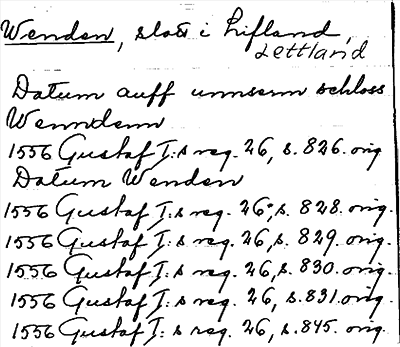 Wenden, slott i Lifland,
Lettland
Datum auff unnserm schloss
Wenndenn
1556 Gustaf I:s reg. 26, s. 826. orig.
Datum Wenden
1556 Gustaf I:s reg. 26, s. 828. orig.
1556 Gustaf I:s reg. 26, s. 829. orig.
1556 Gustaf I:s reg. 26, s. 830. orig.
1556 Gustaf I:s reg. 26, s. 831. orig.
1556 Gustaf I:s reg. 26, s. 845. orig.